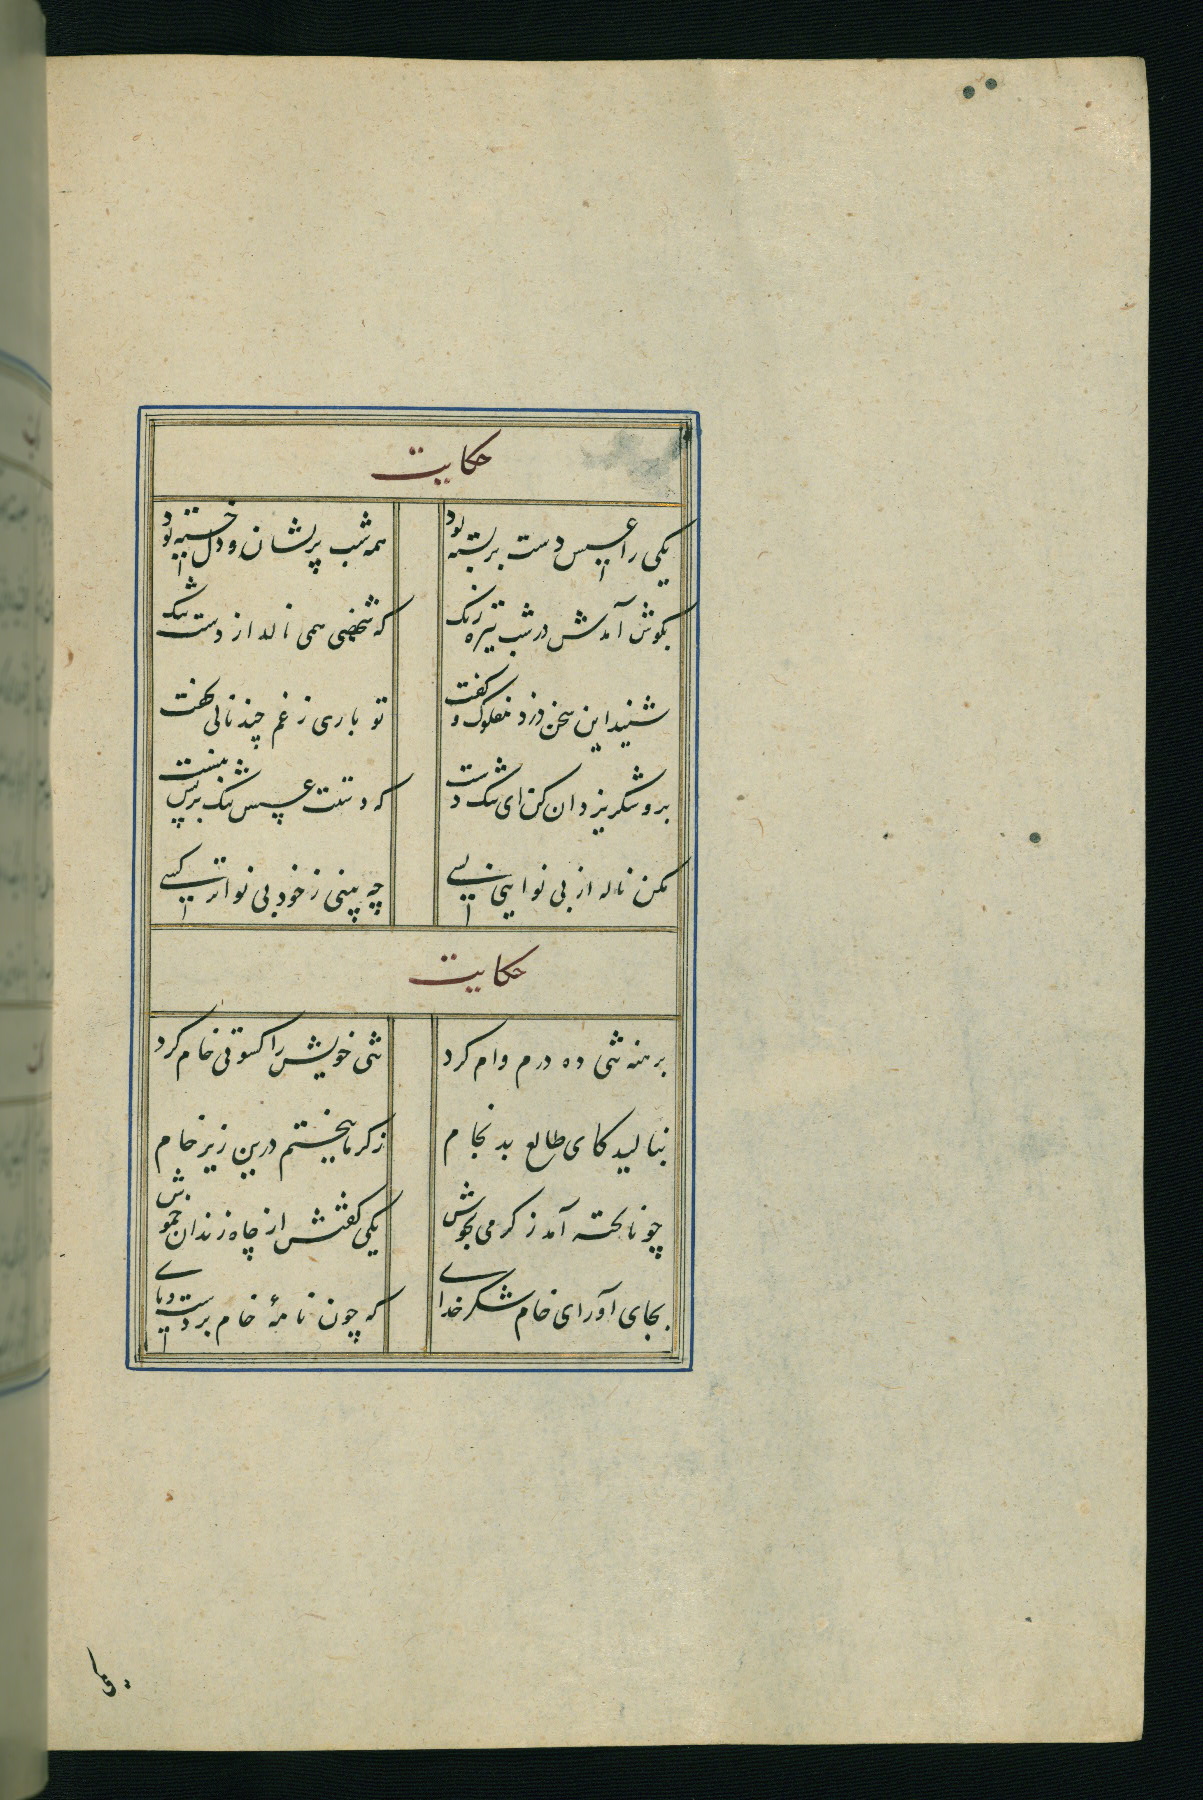 حکایت
یکی را عسس دست بر بسته بود همه شب پریشان و دل خسته بود
بگوش آمدش در شب تیره رنک که شخصی همی نالد از دست تنک
شنید این سخن دزد مغلوک و گفت تو باری ز غم چند نالی بخفت
برو شکر یزدان کن ای تنک دست که دستت عسس تنک بر پس نبست
مکن ناله از بی نوایی بسی چه بینی ز خود بی نواتر کسی
حکایت
برهنه تنی ده درم وام کرد تنی خویش را کسوتی خام کرد
بنالید کای طالع بدنجام ز کرما بپختم درین زیر خام
چو ناپخته آمد ز کرمی بجوش یکی گفتش از چاه زندان خموش
بجای آور ای خام شکر خدای که چون نامهٔ خام بر دست و پای